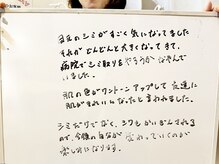 頬のシミがすごく気になってました
それがどんどん大きくなってきて、
病院でシミ取りをやろうかなやんで
いました。
肌の色がワントーンアップして友達に
肌がきれいになったと言われました。
シミだけでなく、シワもかいぜんされる
ので、今後の自分が変わっていくのが
楽しみになります。